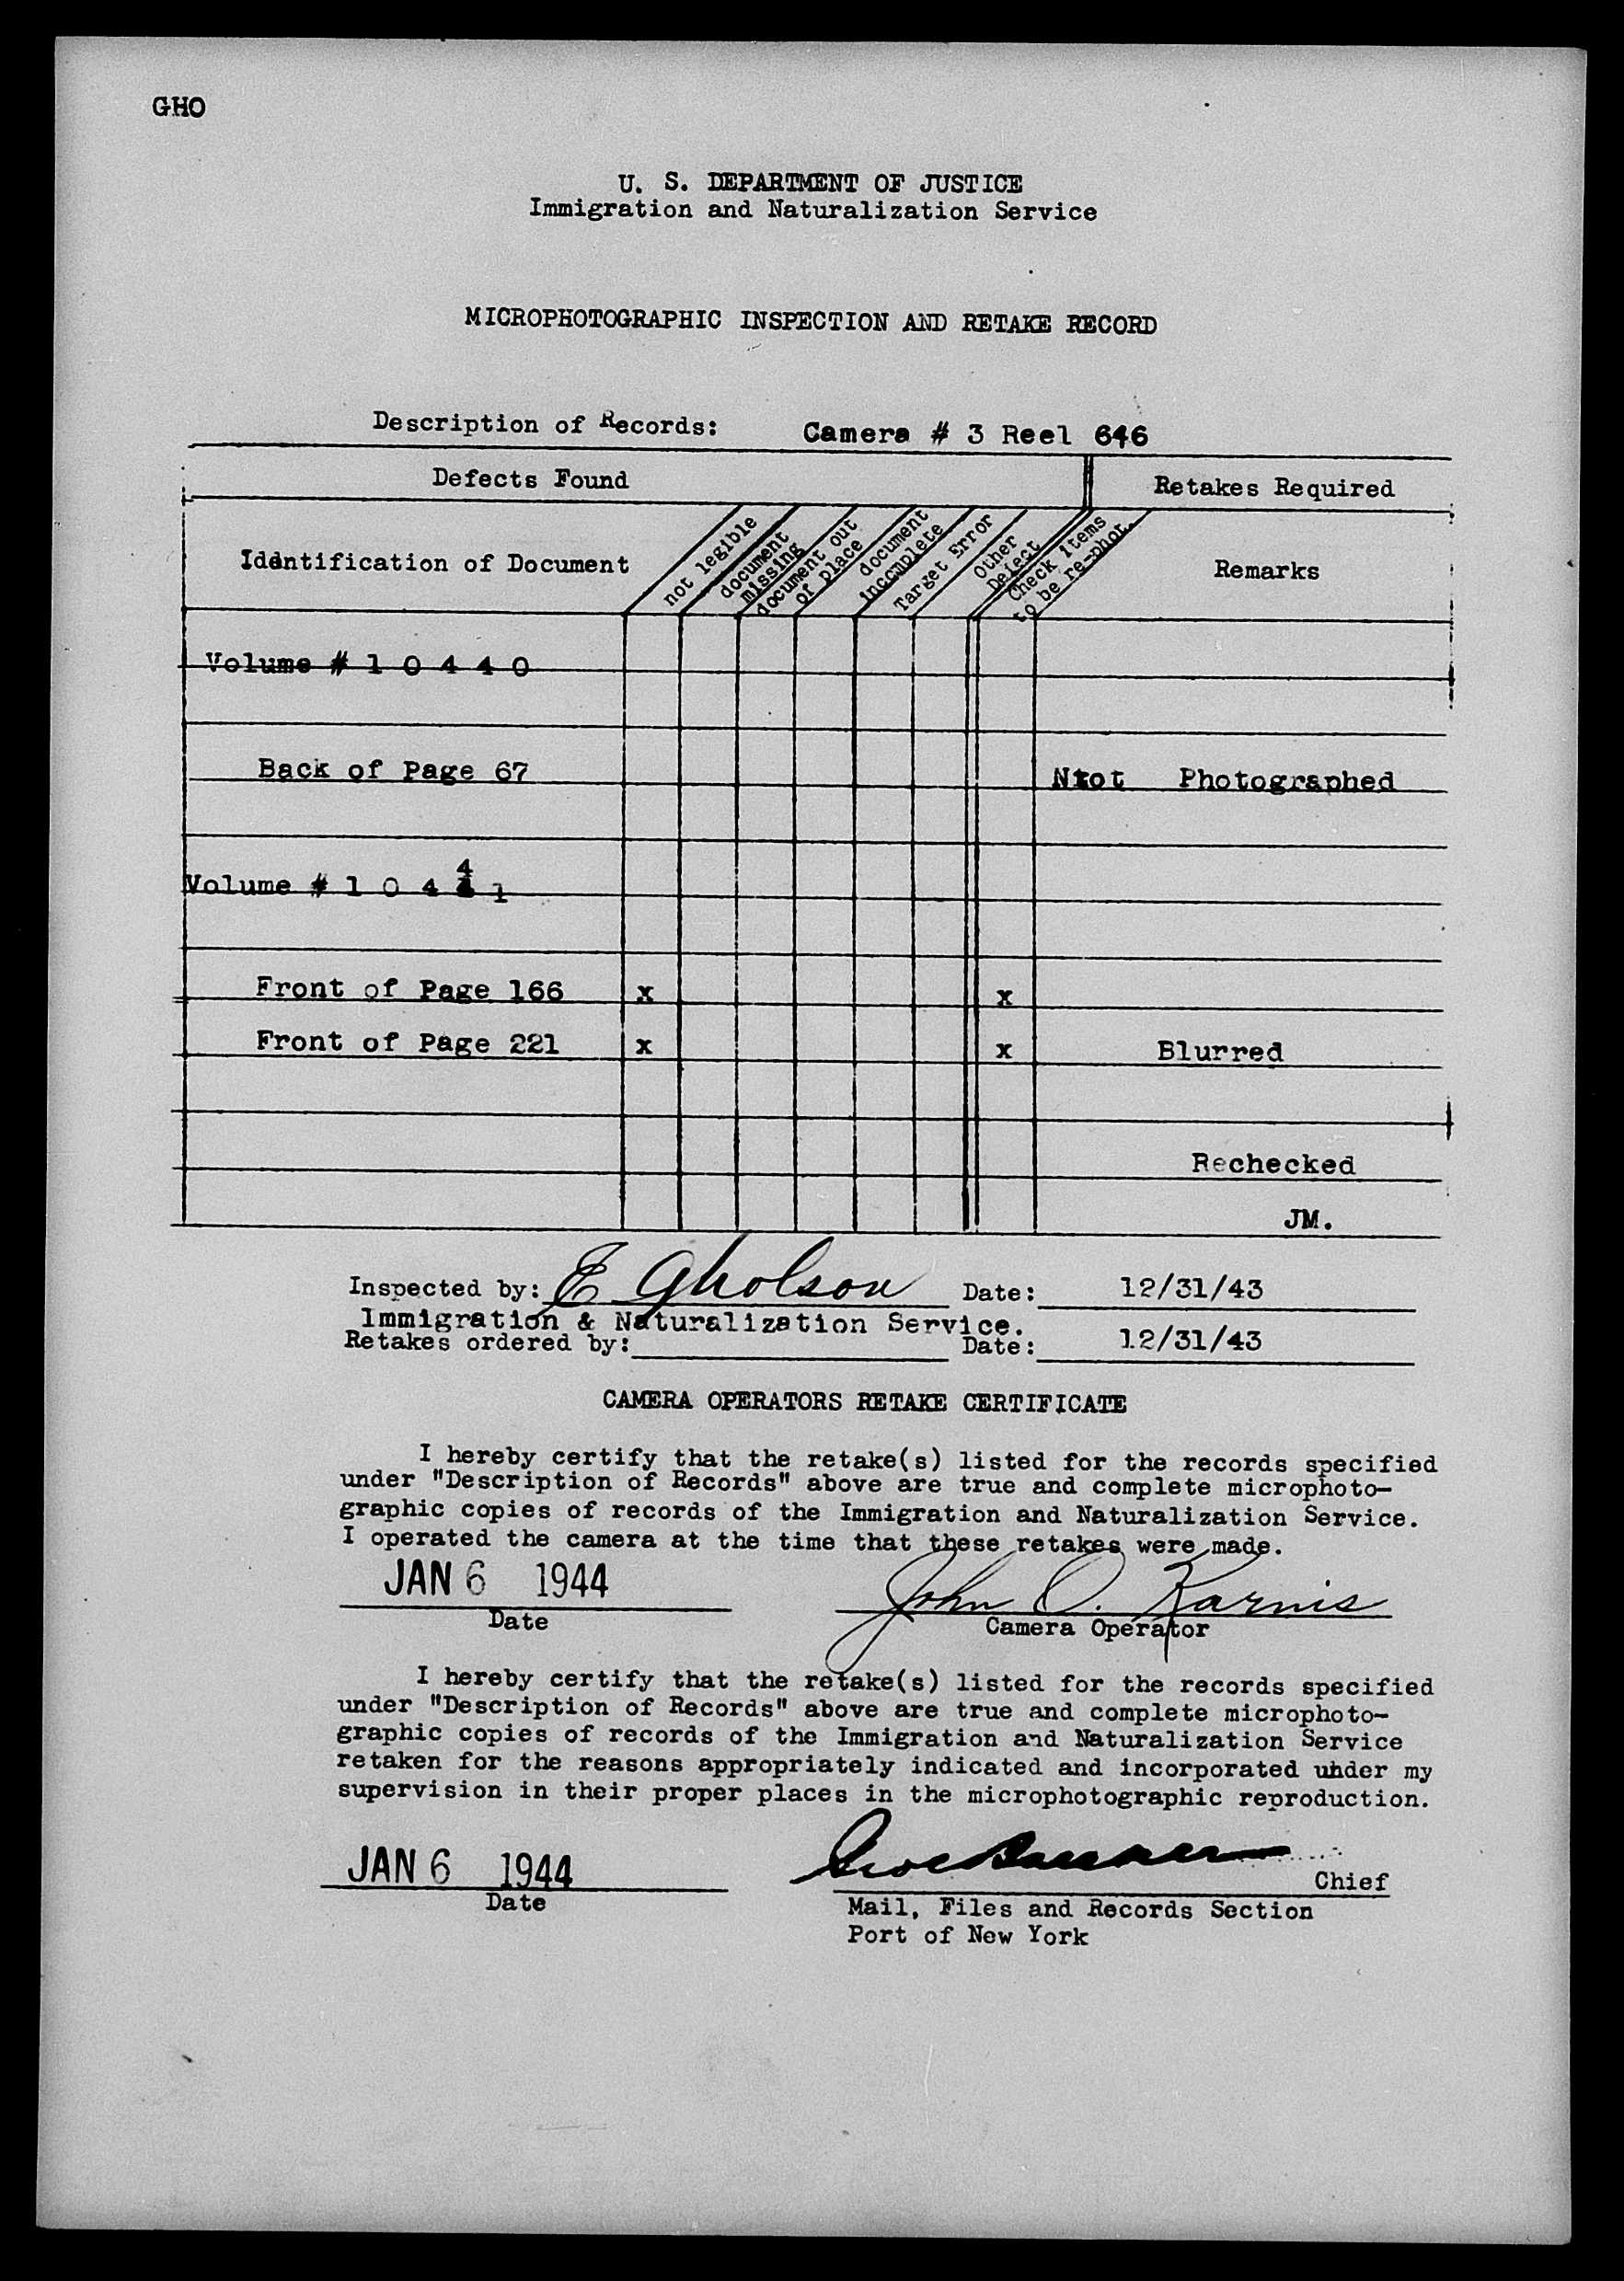 GHO
U. S. DEPARTMENT OF JUSTICE
Immigration and Naturalization Service
MICROPHOTOGRAPHIC INSPECTION AND RETAKE RECORD
Description of Records: Camera # 3 Reel 646
Defects Found Retakes Required
Identification of Document
not legible
document missing
document out of place
document incomplete
Target Error
Other Defect
Check items to be re-phot.
Remarks
Volume # 1 0 4 4 0
Back of Page 67 Ntot Photographed
Volume # 1 0 4 4 1
Front of Page 166 x x
Front of Page 221 x x Blurred
Rechecked
JM.
Inspected by: E Gholson Date: 12/31/43
Immigration & Naturalization Service.
Retakes ordered by: Date: 12/31/43
CAMERA OPERATORS RETAKE CERTIFICATE
I hereby certify that the retake(s) listed for the records specified
under "Description of Records" above are true and complete microphoto-
graphic copies of records of the Immigration and Naturalization Service.
I operated the camera at the time that these retakes were made.
JAN 6 1944 John O. Karnis
Date Camera Operator
I hereby certify that the retake(s) listed for the records specified
under "Description of Records" above are true and complete microphoto-
graphic copies of records of the Immigration and Naturalization Service
retaken for the reasons appropriately indicated and incorporated uhder my
supervision in their proper places in the microphotographic reproduction.
JAN 6 1944 Chief
Date Mail, Files and Records Section
Port of New York